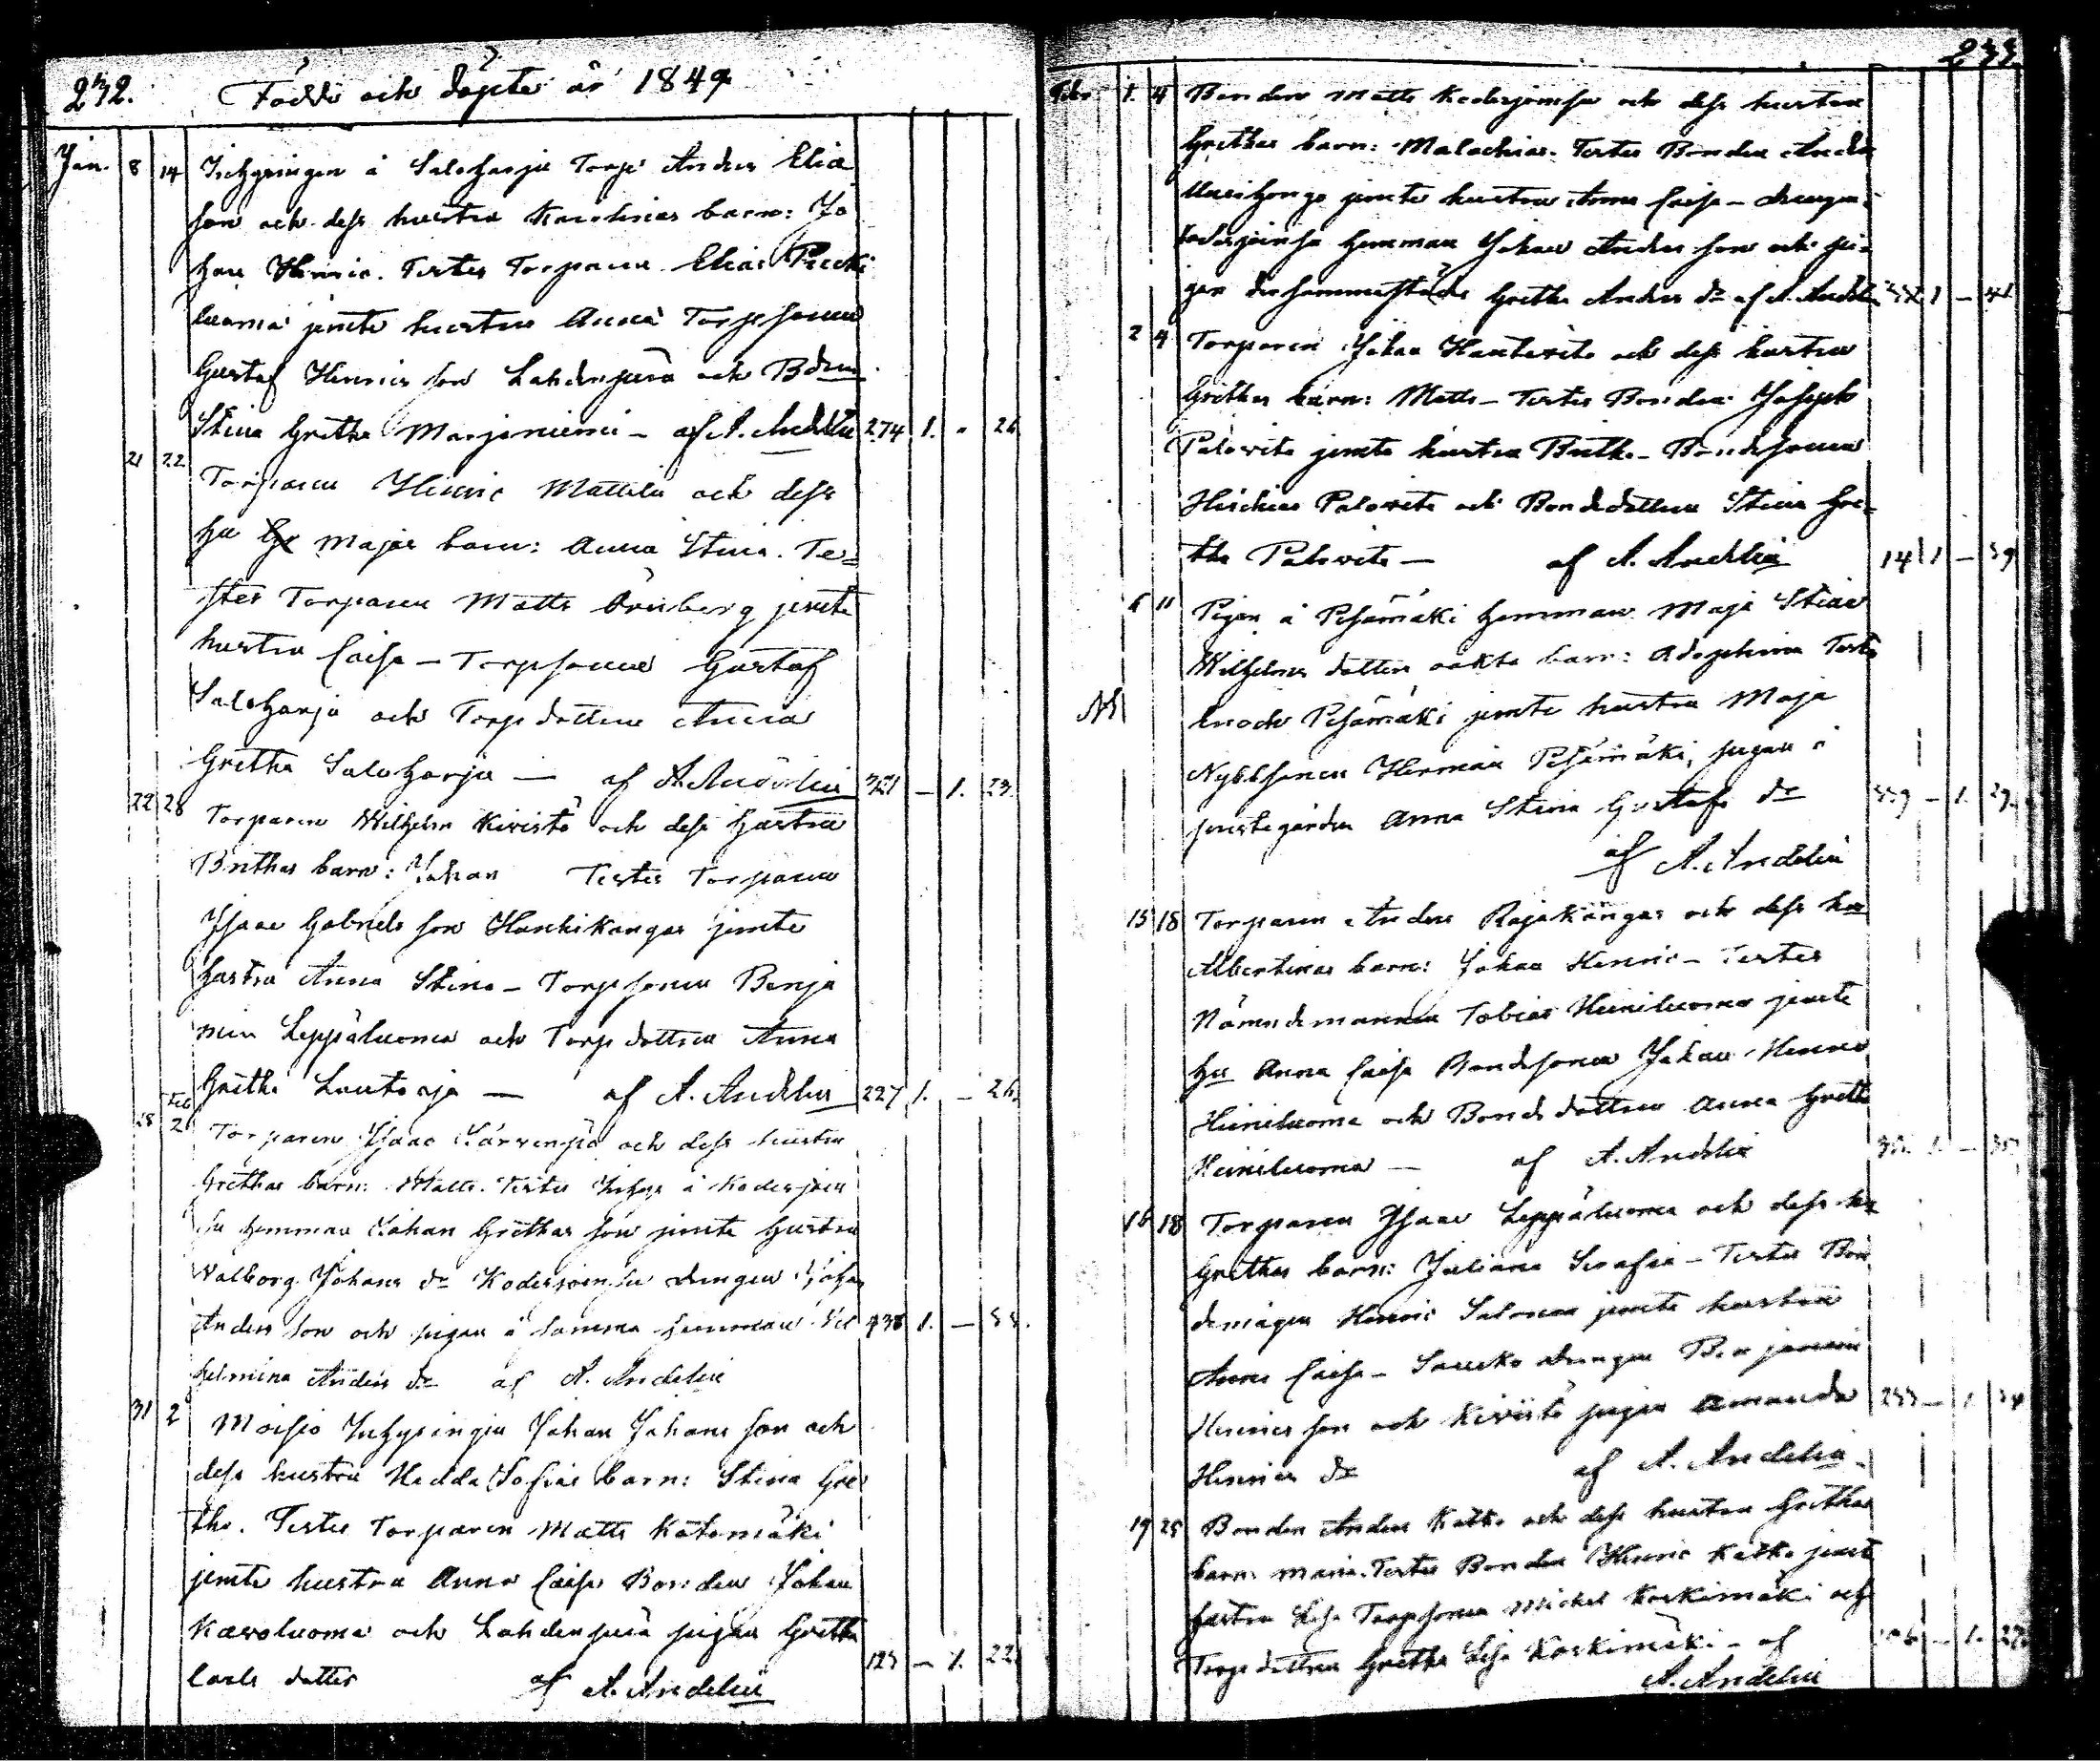 232. Födde och döpte år 1849
Jan. 8 14 Inhysingen å Saloharju Torp Anders Elia
son och dess hustru Karolinas barn: Jo
han Henric. Testes Torparen Elias
luoma jemte hustru Anna Torpsonen
Gustaf Henrics son Lahdenperä och Bdrn
Stina Gretha Marjaniemi - af A. Andelin 274 1. " 26
21 22 Torparen Henric Mattila och dess
hu Majas barn: Anna Stina. Te=
stes Torparen Matts Örnberg jemte
hustru Caisa - Torpsonen Gustaf
Saloharju och Torpdottren Anna
Gretha Saloharju — af A. Andelin 321 - 1. 23.
22 28 Torparen Wilhelm Kivistö och dess hustru
Brithas barn: Johan Testes Torparen
Isaac Gabriels son Hanhikangas jemte
hustru Anna Stina - Torpsonen Benja
min Leppäluoma och Torpdottren Anna
Gretha Lautaoja — af A. Andelin 227 1. - 26.
28 Feb 2 Torparen Isaac Järvenpä och dess hustru
Grethas barn: Matts. Testes Inhys å Koderjoen
su hemman Johan Grethas son jemte hustru
Valborg Johans dr Koderjoensu drengen Johan
Anders son och pigan å samma hemman Vil 438 1. —
helmina Anders dr af A. Andelin
31 2 Moisio Inhysingen Johan Johans son och
dess hustru Hedda Sofias barn: Stina Gre
tha. Testes Torparen Matts Katomäki
jemte hustru Anna Caisa Bonden Johan
luoma och Lahdenperä pigan Gretha
Carls dotter af A. Andelin 123 - 1. 22
233.
Febr. 1. 4 Bonden Matts Koderjoensu och dess hustru
Grethas barn: Malachias. Testes Bonden Anders
jemte hustru Anna Caisa - drengen å
Koderjoensu hemman Johan Anders son och pi=
gan dersammastädes Gretha Anders dr af A. Andelin 1 -
2 4 Torparen Johan Hautaviita och dess hustru
Grethas barn: Matts - Testes Bonden Joseph
Paloviita jemte hustru Britha - Bondesonen
Paloviita och Bondedottren Stina Gre=
tha Paloviita — af A. Andelin 14 1 - 39
6 11 Pigan å Pesämäki hemman Maja Stina
Wilhelms dotters oäkta barn: Adolphina Testes
Enoch Pesämäki jemte hustru Maja
Nybbsonen Herman Pesämäki, pigan i
prestegården Anna Stina Gustafs dr - 1. 29.
af A. Andelin
15 18 Torparen Anders Rajakangas och dess hu
Albertinas barn: Johan Henric - Testes
Nämndemannen Tobias Heiniluoma jemte
hu Anna Caisa Bondesonen Johan Henric
Heiniluoma och Bondedottren Anna Gretha
Heiniluoma — af A. Andelin
16 18 Torparen Isaac Leppäluoma och dess hu
Grethas barn: Juliana Serafia - Testes Bon
demågen Henric Salonen jemte hustru
Anna Caisa - Saucko drengen Benjamin
Henrics son och Kivistö pigan Amanda 233 - 1.
Henrics dr af A. Andelin
19 25 Bonden Anders Katko och dess hustru Grethas
barn: Maria. Testes Bonden Henric Katko jemte
hustru Lisa Torpsonen Michel Koskimäki och
Torpdottren Gretha Lisa Koskimäki - af - 1.
A. Andelin